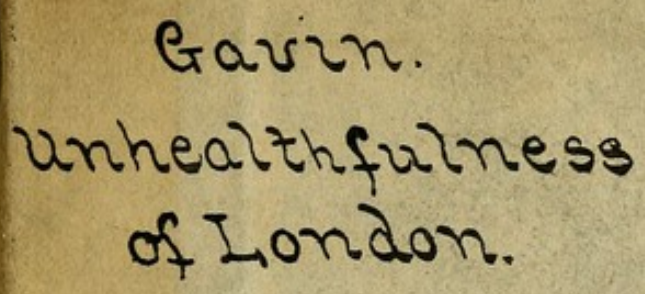 Gavin.
Unhealthfulness
of London.